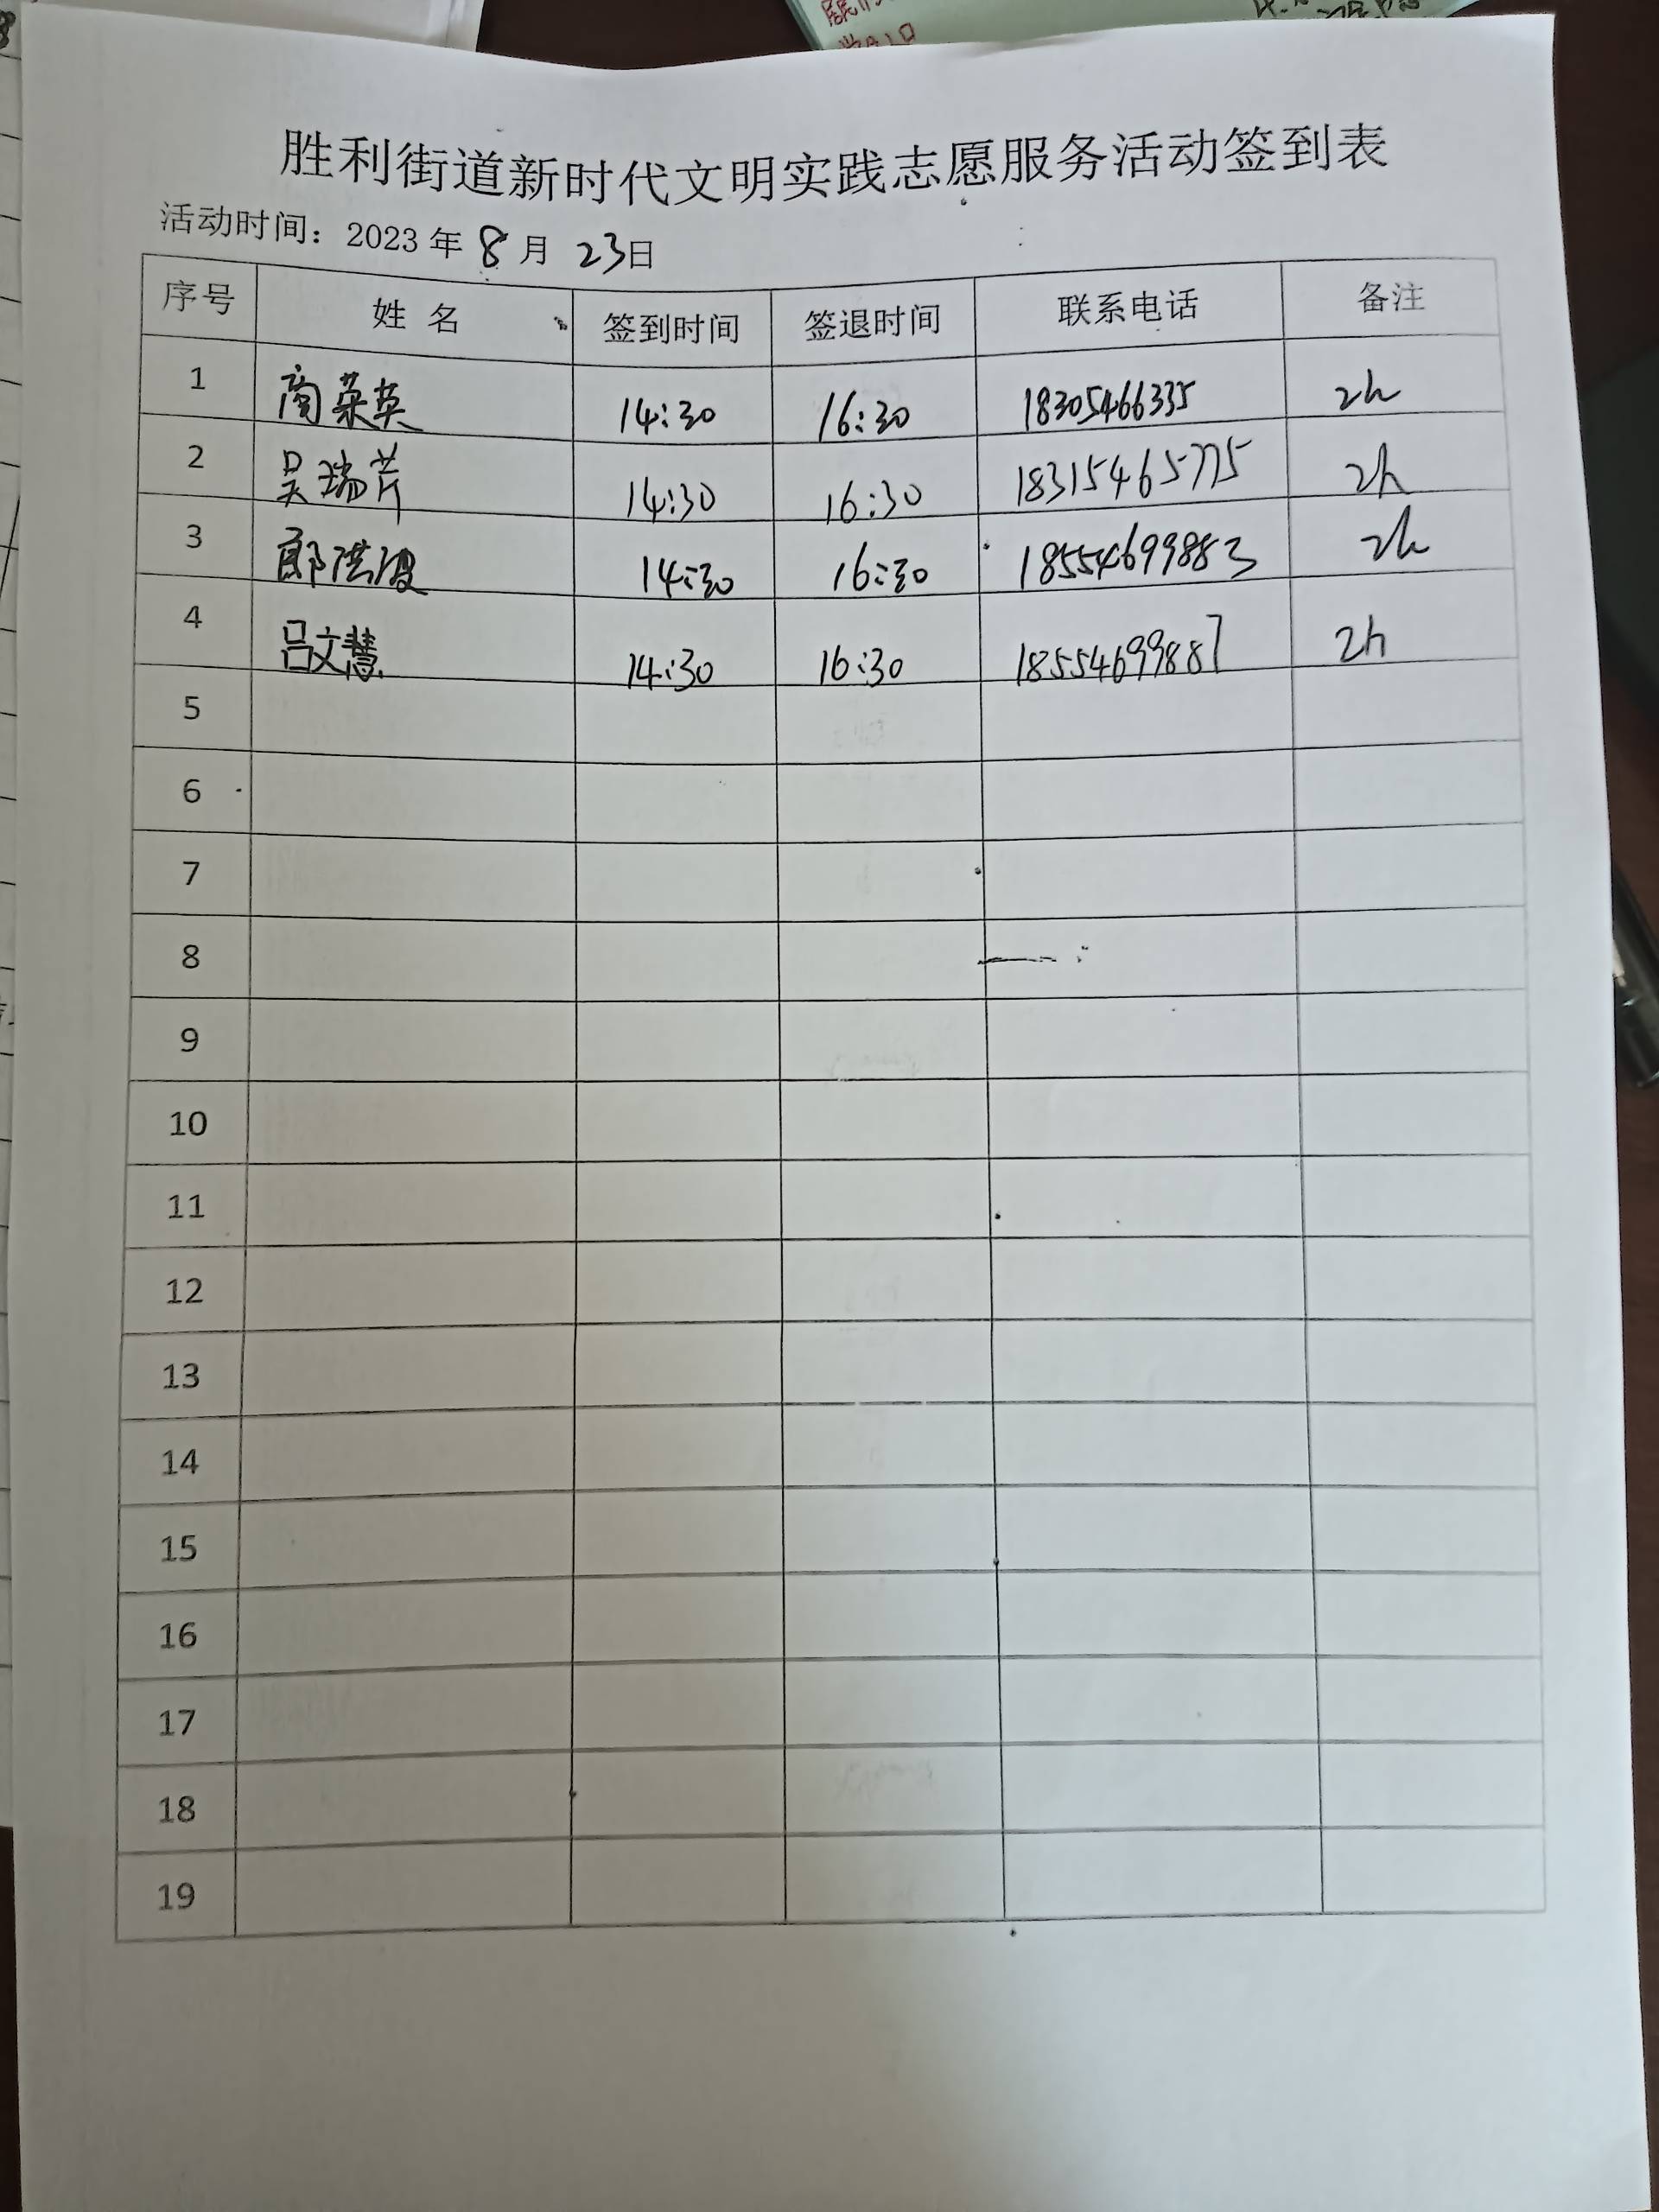 胜利街道新时代文明实践志愿服务活动签到表
活动时间：2023年8月23日
序号 姓名 签到时间 签退时间 联系电话 备注
1 商荣英 14:30 16:30 18305466335 2h
2 吴瑞芹 14:30 16:30 18315465775 2h
3 郎洪波 14:30 16:30 18554699883 2h
4 吕文慧 14:30 16:30 18554699887 2h
5
6
7
8
9
10
11
12
13
14
15
16
17
18
19